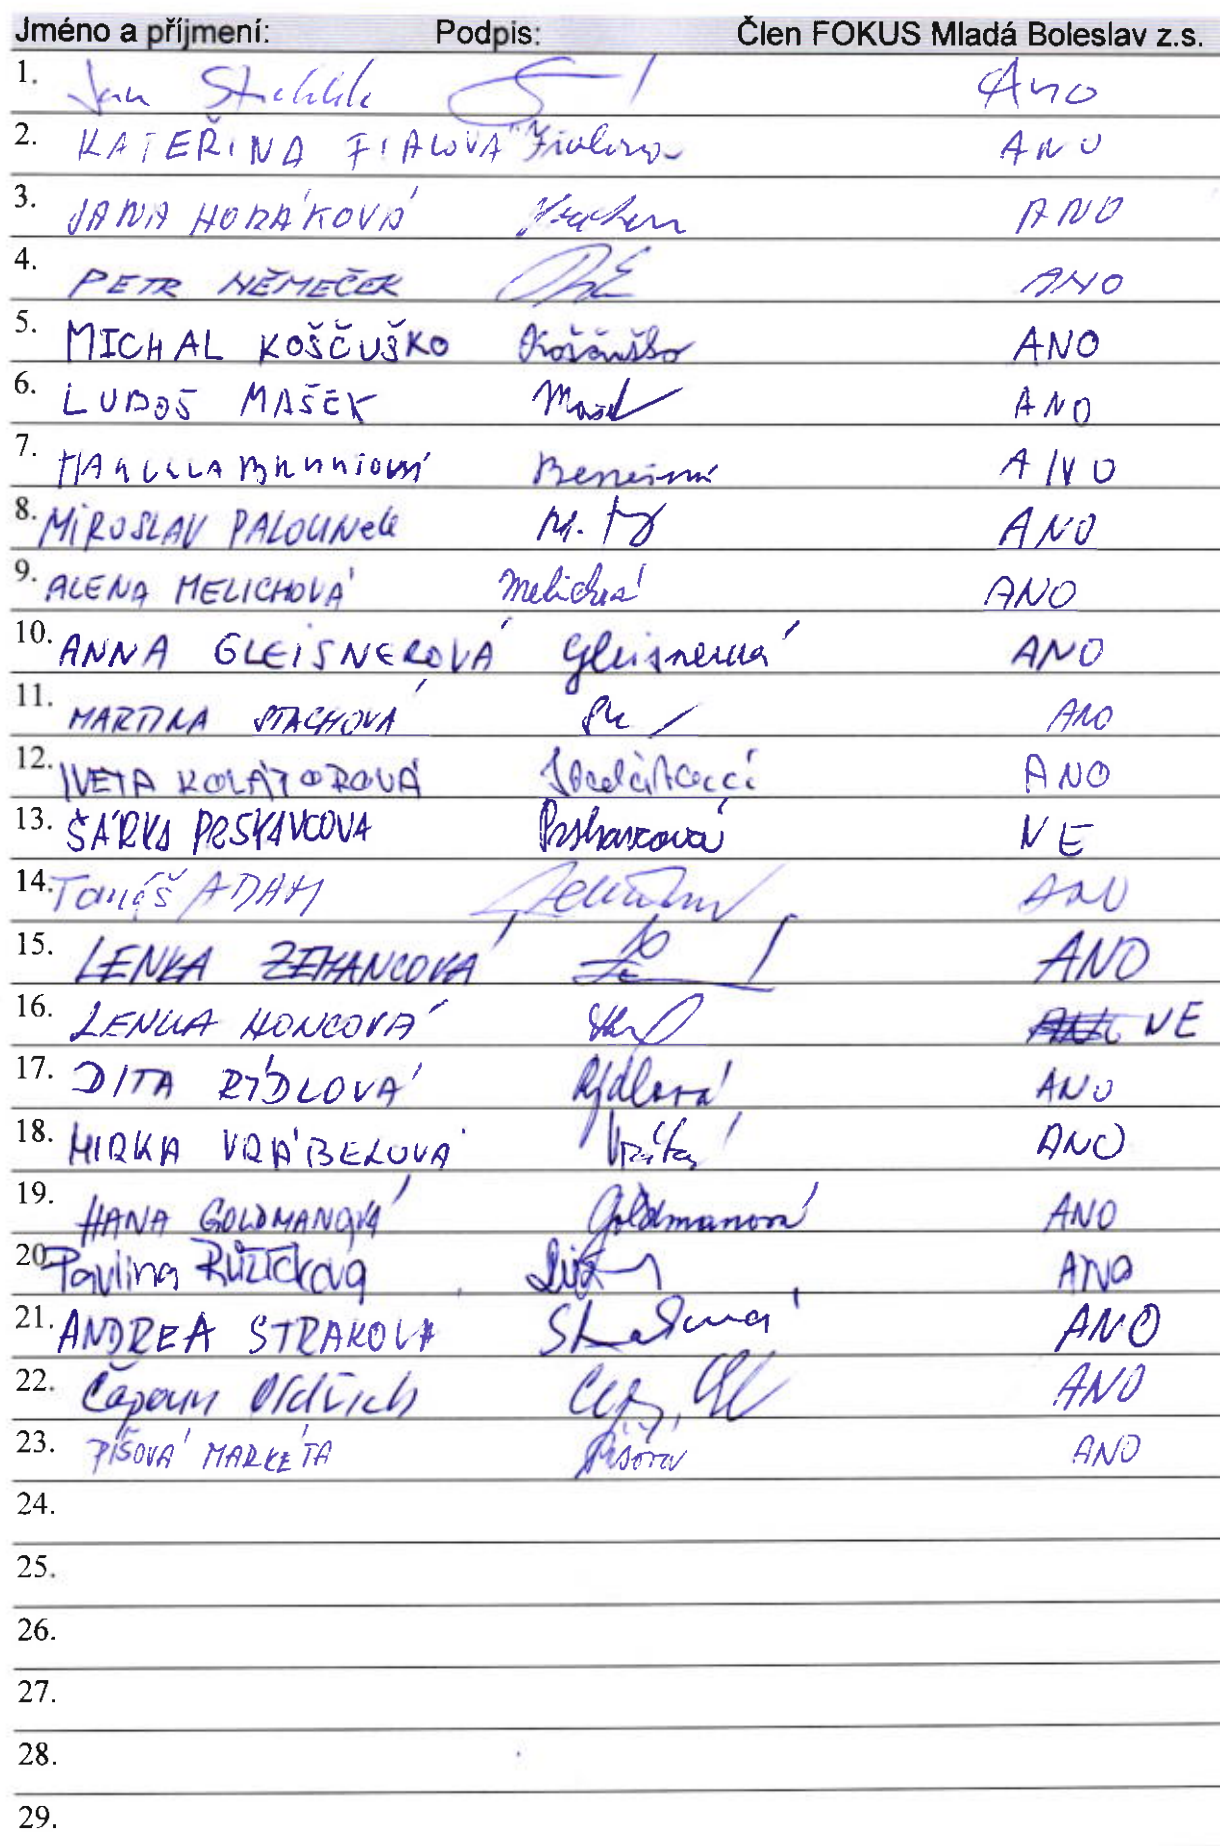 Jméno a příjmení: Podpis: Člen FOKUS Mladá Boleslav z.s.
1. Jan Ano
2. KATEŘINA FIALOVÁ Fialova ANO
3. JANA HORÁKOVÁ ANO
4. PETR NĚMEČEK ANO
5. MICHAL KOŠČUŠKO Koščuško ANO
6. LUBOŠ MAŠEK Mašek ANO
7. ANO
8. MIROSLAV PALOUNEK M. ANO
9. ALENA MELICHOVÁ Melichová ANO
10. ANNA GLEISNEROVÁ Gleisnerová ANO
11. MARTINA STACHOVÁ ANO
12. IVETA KOLÁTOROVÁ ANO
13. ŠÁRKA PRSKAVCOVA Prskavcová NE
14. Tomáš ADAM ANO
15. LENKA ZEMANCOVÁ ANO
16. LENKA HONCOVÁ NE
17. DITA RÝDLOVÁ Rýdlová ANO
18. MIRKA VRÁBELOVÁ ANO
19. HANA GOLDMANOVÁ Goldmanová ANO
20. Pavlína Růžičková ANO
21. ANDREA STRAKOVA Straková ANO
22. Čapoun Oldřich ANO
23. PÍŠOVÁ MARKÉTA Píšová ANO
24.
25.
26.
27.
28.
29.